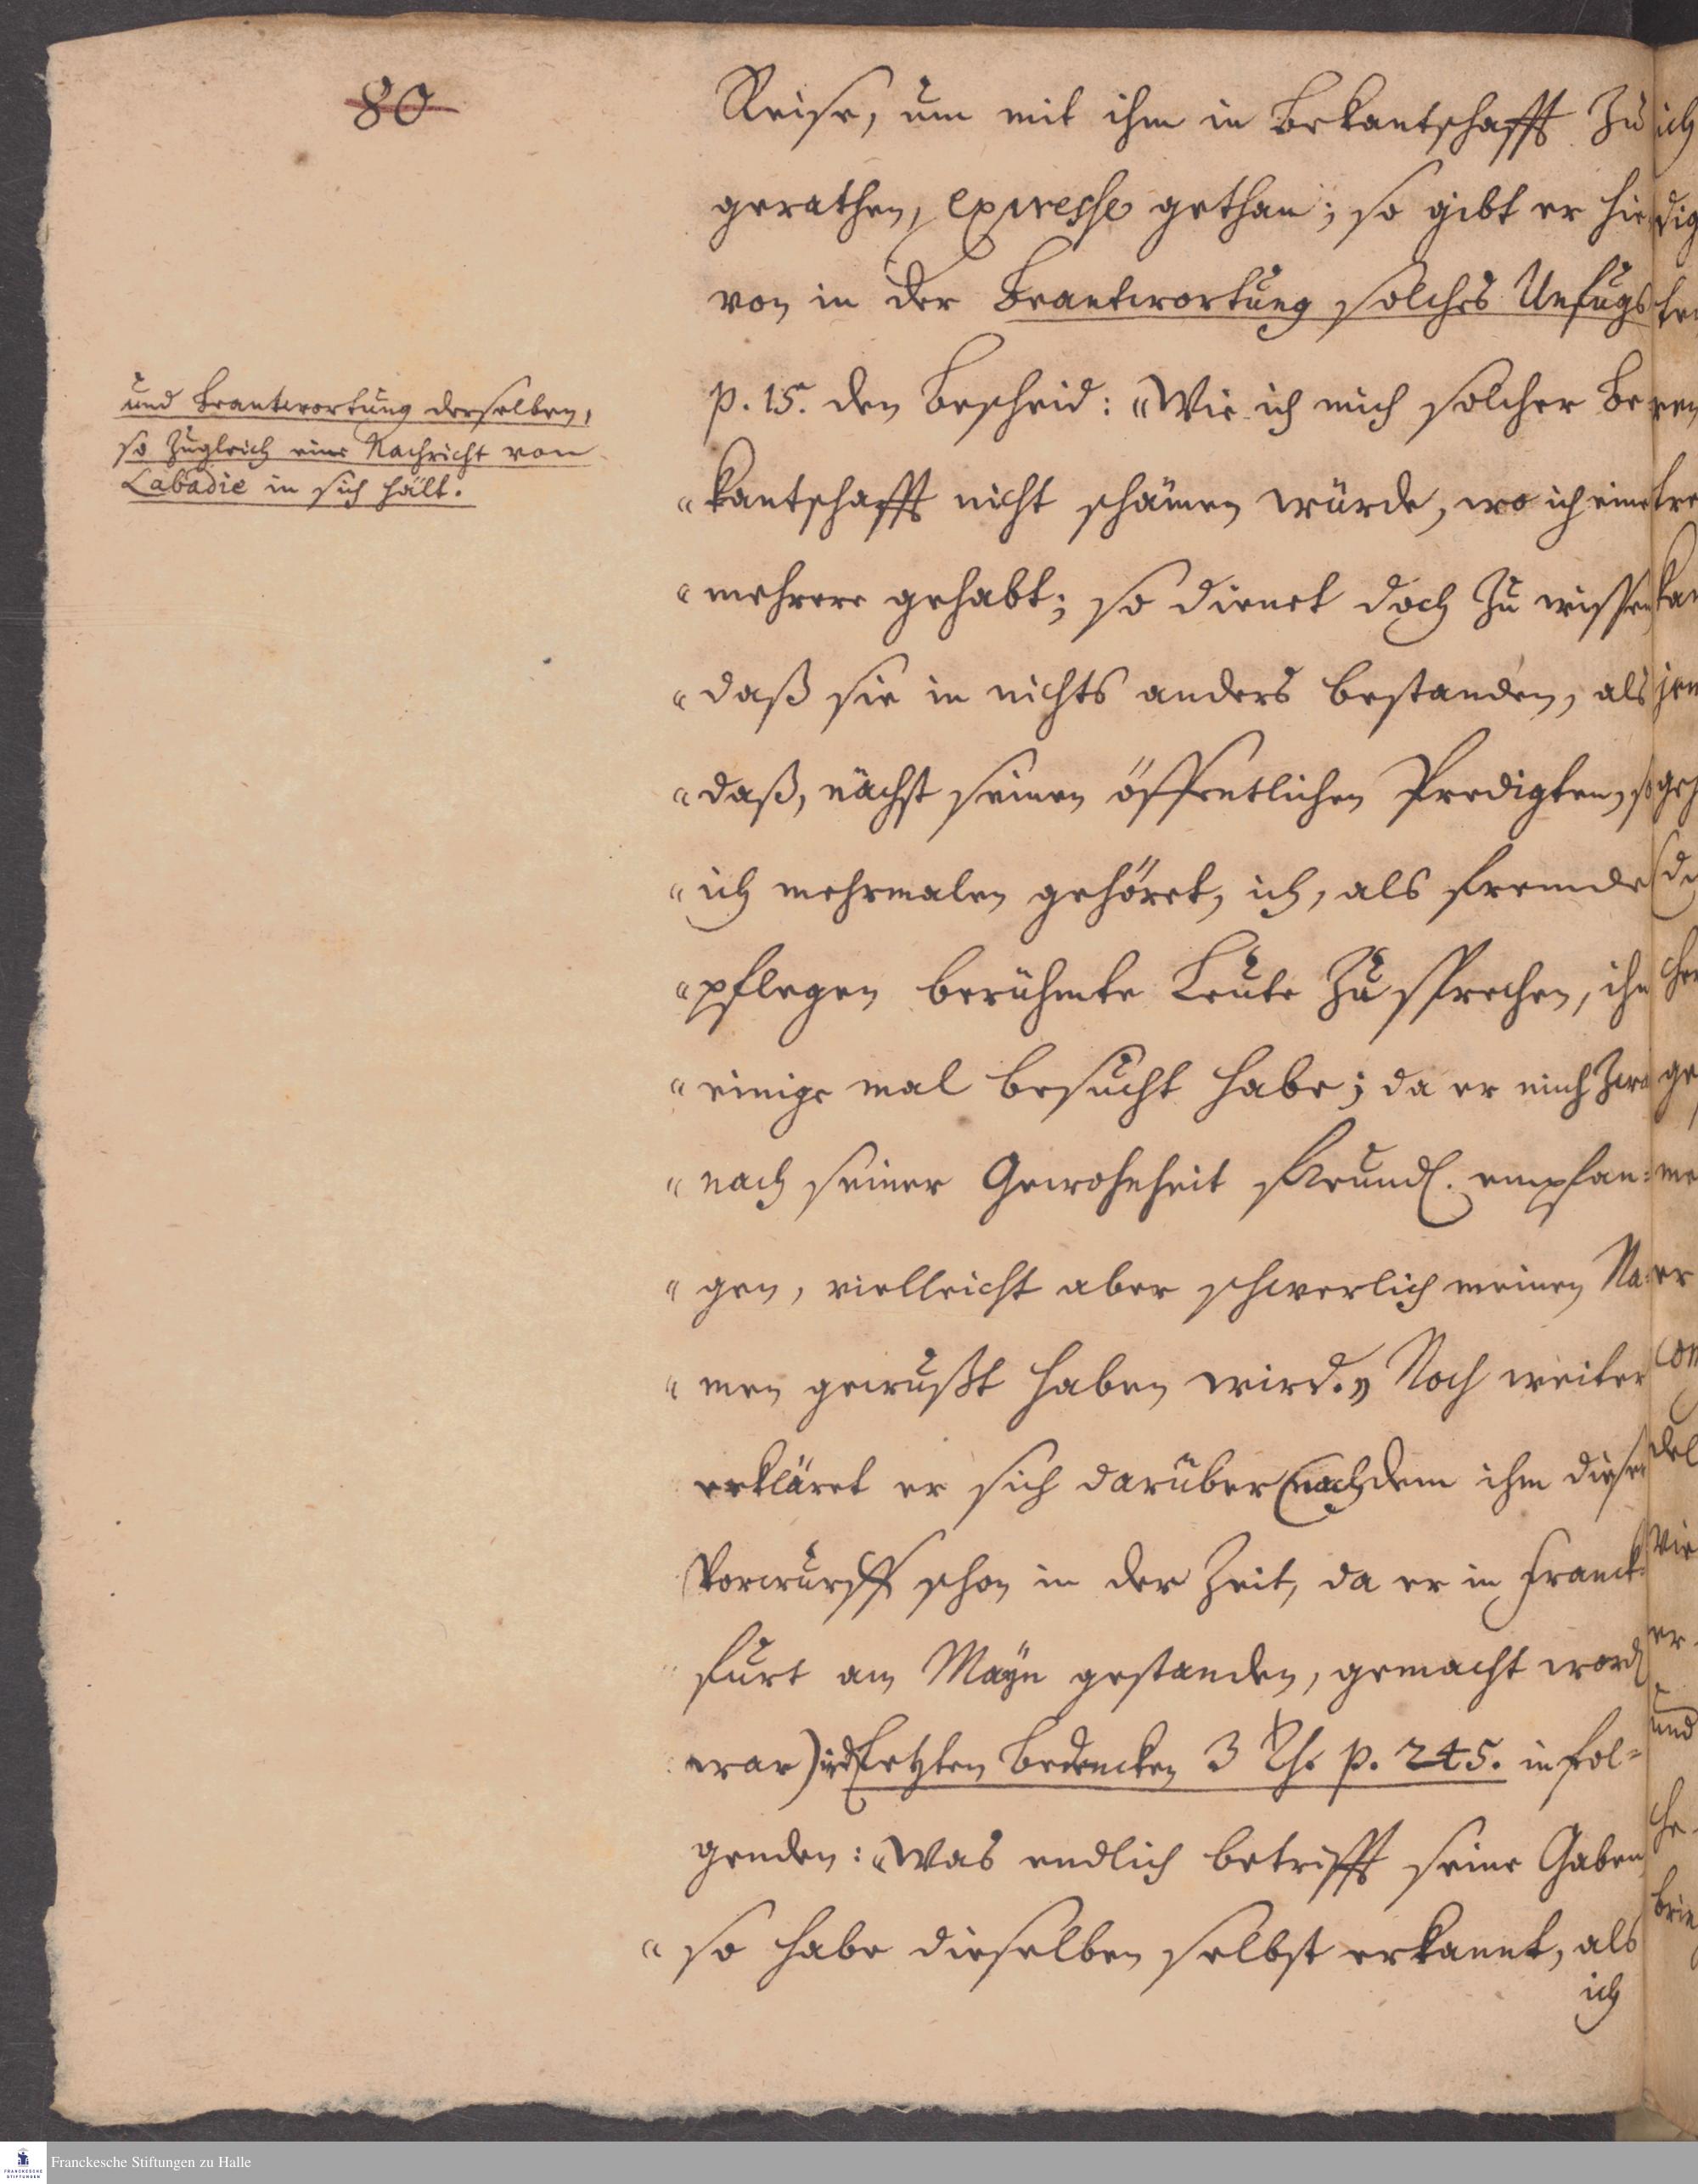 80
Reise, um mit ihm in Bekantschafft zu
gerathen, expresse gethan; so gibt er hie
von in der Beantwortung solches Unfugs
p. 15. den Bescheid: „Wie ich mich solcher Be
und Beantwortung derselben,
so zugleich eine Nachricht von
Labadie in sich hält.
„kantschafft nicht schämen würde, wo ich eine
„mehrere gehabt; so dienet doch zu wissen
„daß sie in nichts anders bestanden, als
„daß, nächst seinen öffentlichen Predigten, so
„ich mehrmalen gehöret, ich, als Fremde
„pflegen berühmte Leute zu sprechen, ihn
„einige mal besucht habe; da er mich zwa
„nach seiner Gewohnheit freundl. empfan=
„gen, vielleicht aber schwerlich meinen Na=
„men gewußt haben wird.„ Noch weiter
erkläret er sich darüber (nachdem ihm dieser
Vorwurff schon in der Zeit, da er in Franck=
furt am Mayn gestanden, gemacht word
war) in d. Letzten Bedencken 3 Th. p. 245. in fol=
genden: „Was endlich betrifft seine Gaben
„so habe dieselben selbst erkannt, als
ich
Franckesche Stiftungen zu Halle